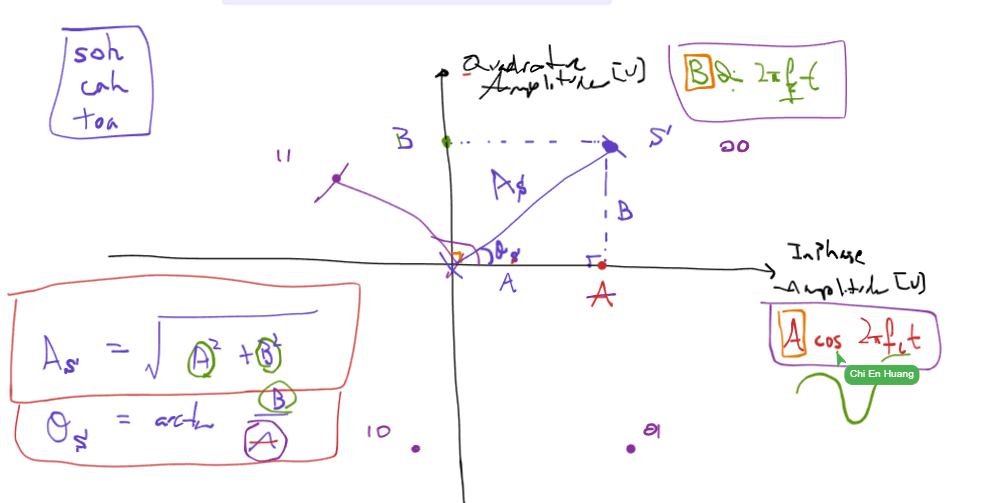 soh
cah
toa
Quadrature
Amplitude [V]
B sin 2πfct
B
S'
00
11
As'
B
θs'
A
A
InPhase
Amplitude [V]
A cos 2πfct
Chi En Huang
As' = √A² + B²
θs' = arctan B/A
10
01